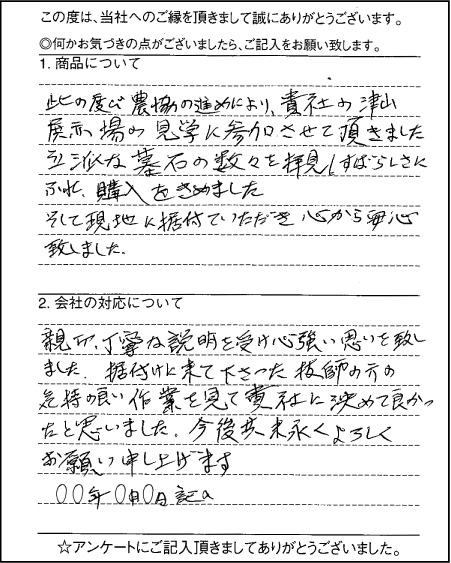 この度は、当社へのご縁を頂きまして誠にありがとうございます。
◎何かお気づきの点がございましたら、ご記入をお願い致します。
1. 商品について
此の度び農協の進めにより、貴社の津山
展示場の見学に参加させて頂きました
立派な墓石の数々を拝見しすばらしさに
ふれ、購入をきめました
そして現地に据付ていただき心から安心
致しました.
2. 会社の対応について
親切、丁寧な説明を受け心強い思いを致し
ました. 据付けに来て下さった技師の方の
気持の良い作業を見て貴社に決めて良かっ
たと思いました. 今後共末永くよろしく
お願い申し上げます
〇〇年〇月〇日 記a
☆アンケートにご記入頂きましてありがとうございました。